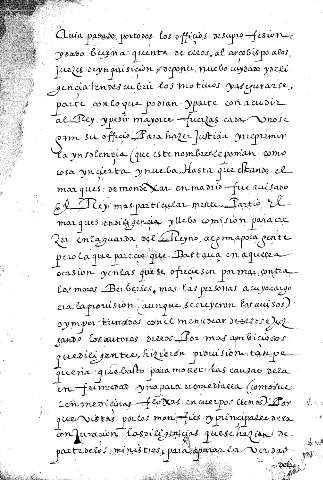 Avia pasado, por todos los officios de su profesion
y dado buena quenta de ellos, al arcobispo a los
juezes de ynquisicion y de poner, nuebo cuydado y deli
gencia en descubrir los motivos y asegurarse,
parte con lo que podian y parte con acudir
al Rey y pedir mayores fuerzas cada Uno se
gun su officio Para hazer Justicia y reprimir
la ynsolencia (que este nombre le ponian como
cosa yncierta y nueba. Hasta que estando el
marques de mondexar en madrid fue avisado
el Rey mas particularmente. Partio, el
marques en diligencia y llebo comision para cre
zer en la guarda del Reyno, alguna poca gente
pero la que parecio que bastava en aquella
ocasion y en las que se ofreciesen por mar, contra
los moros Berberies, mas las personas a cuyo cargo
era la provision, aunque se creyeron los avisos)
ynportunados con el menudear de ellos o juz
gando los autores de ellos Por mas ambiciosos
que diligentes, hizieron provision tan pe
queña que basto para mover las causas de la
enfermedad y no para remediarla (como sue
len medicinas flojas en cuerpos llenos) Por
que vistas por los monfies y principales de la
conjuracion las diligencias que se hazian de
parte de los ministros, para apurar la verdad